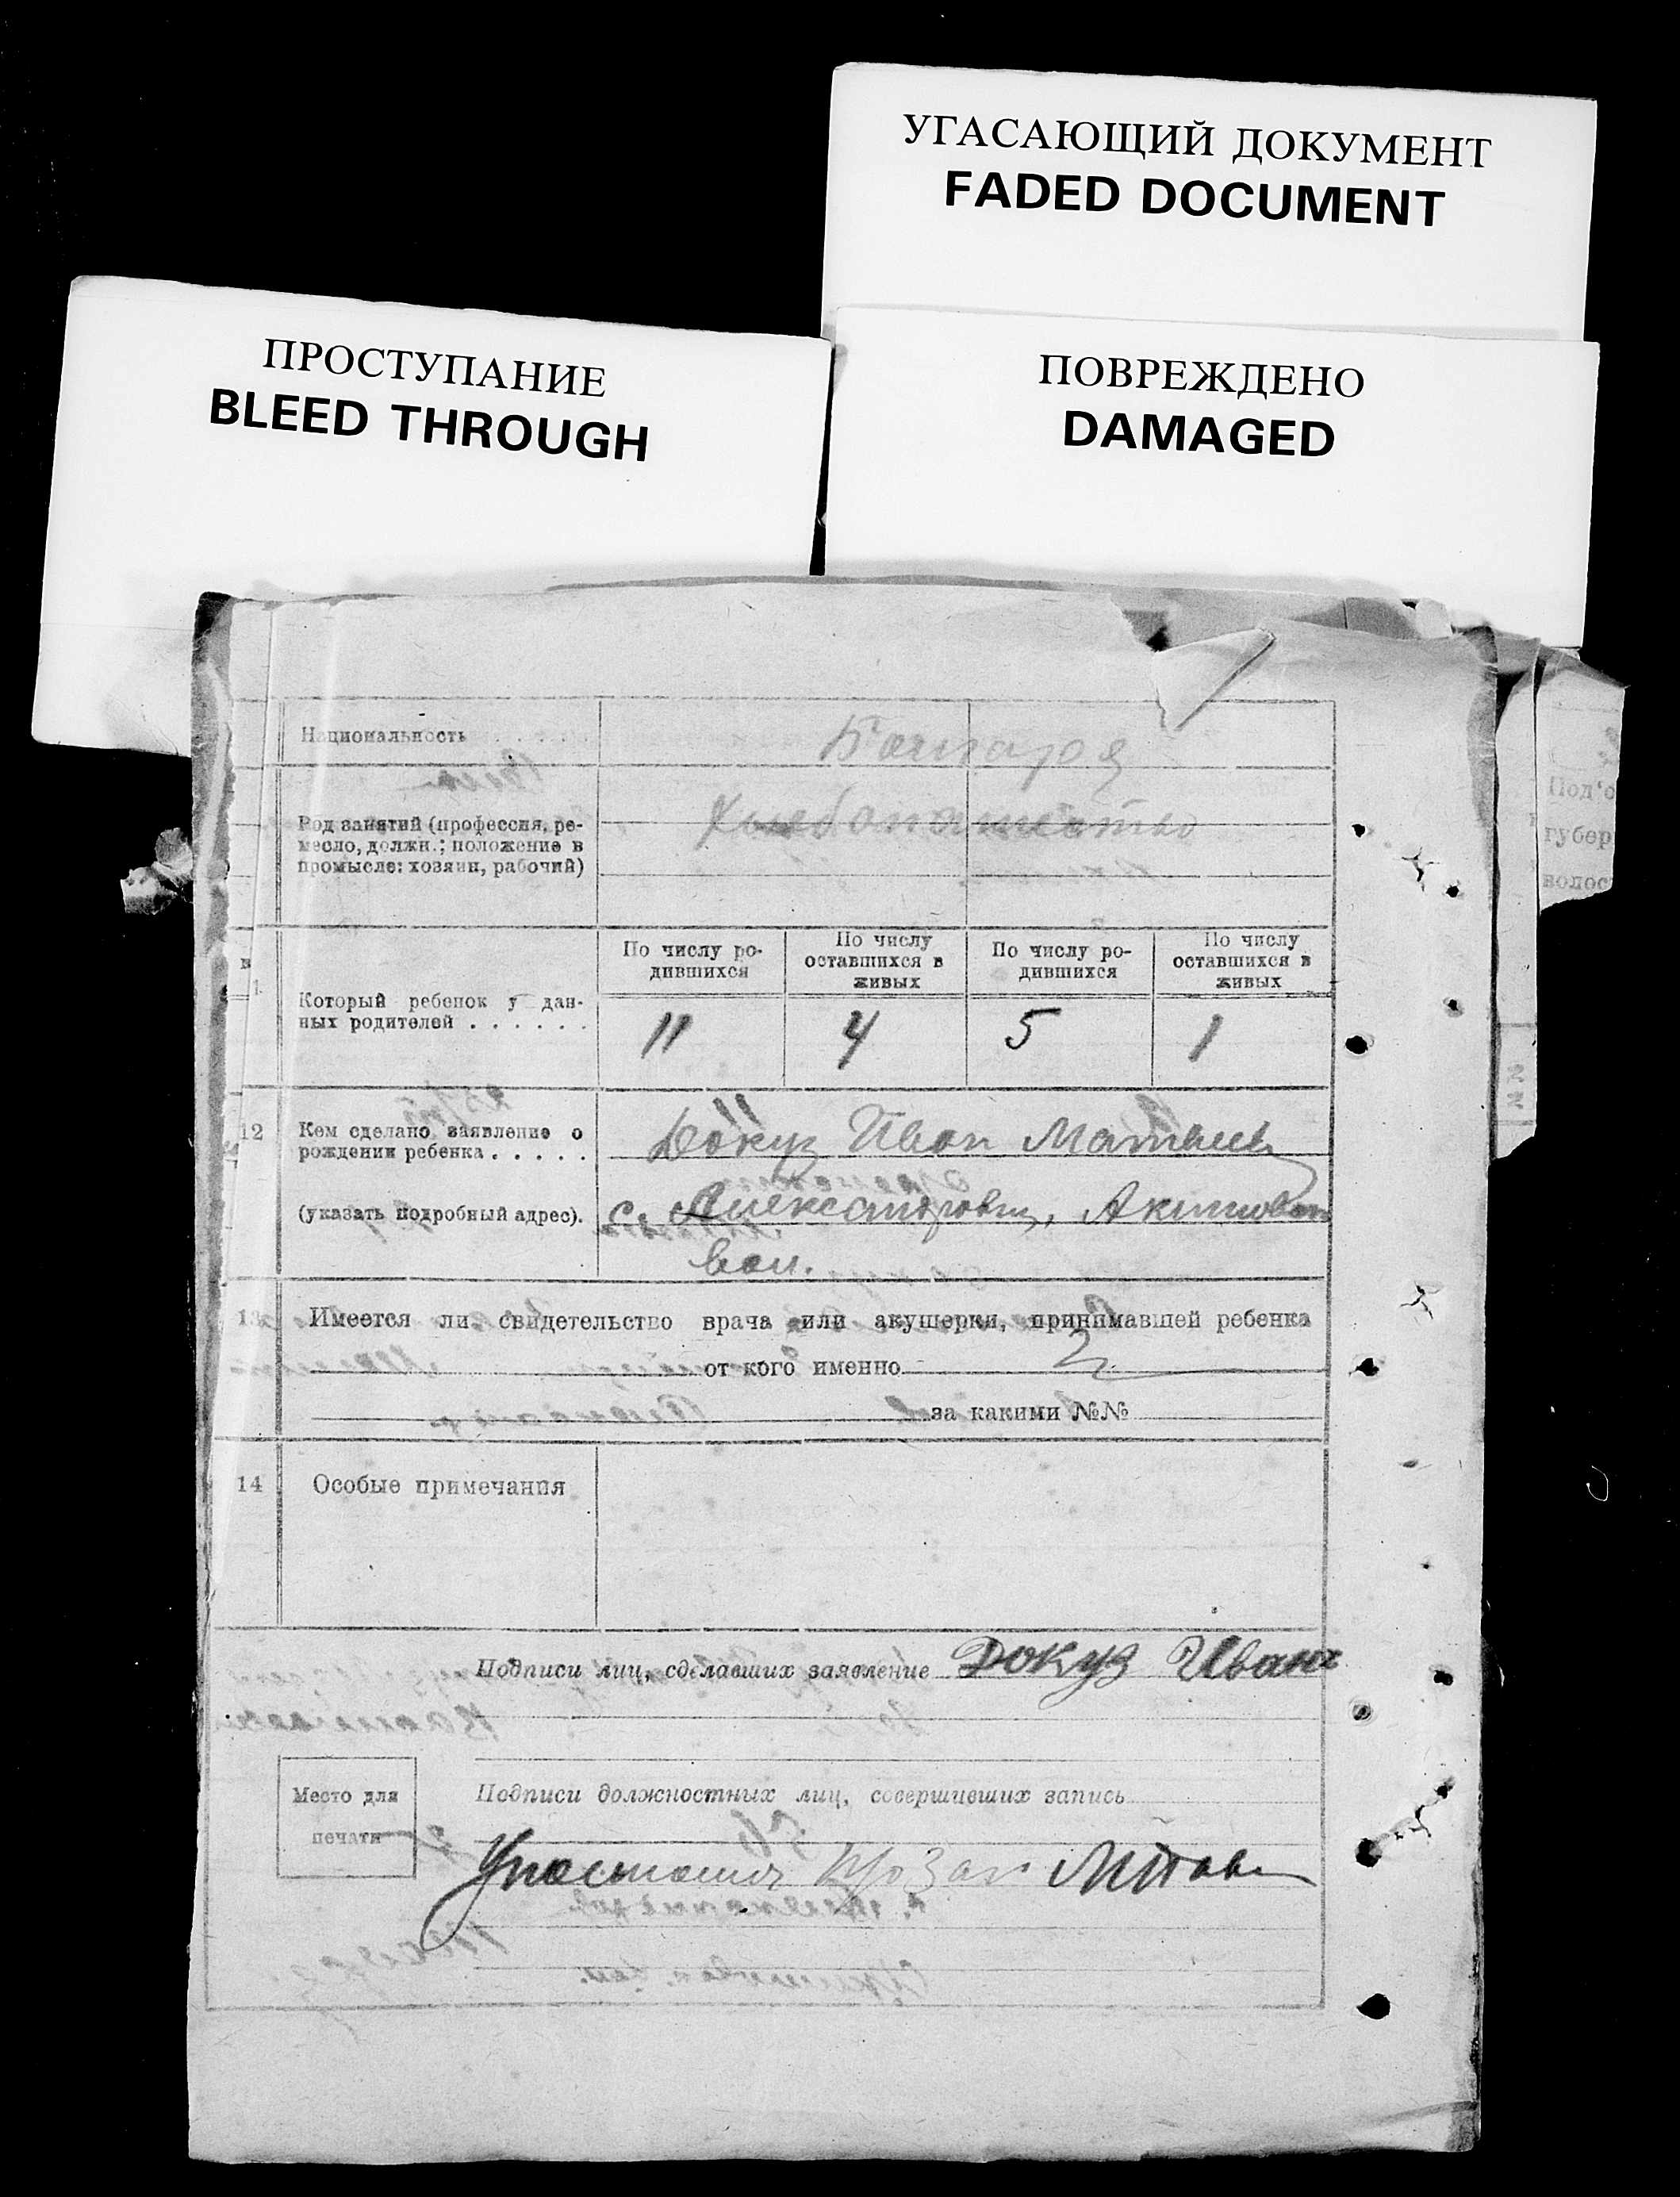 УГАСАЮЩИЙ ДОКУМЕНТ
FADED DOCUMENT
ПРОСТУПАНИЕ
BLEED THROUGH
ПОВРЕЖДЕНО
DAMAGED
Национальность . . . . .
Болгаре
Род занятий (профессия, ре-
месло, должн.; положение в
промысле: хозяин, рабочий)
Хлебопашество
Под'о
губер
волос
По числу ро-
дившихся
По числу
оставшихся в
живых
По числу ро-
дившихся
По числу
оставшихся в
живых
Который ребенок у дан-
ных родителей . . . . . .
11 4 5 1
12 Кем сделано заявление о
рождении ребенка . . . . .
Докуз Иван
(указать подробный адрес).
с. Александровка, Акимовск
вол.
13 Имеется ли свидетельство врача или акушерки, принимавшей ребенка
от кого именно
за какими №№
14 Особые примечания
Подписи лиц, сделавших заявление Докуз Иван
Место для
печати
Подписи должностных лиц, совершивших запись